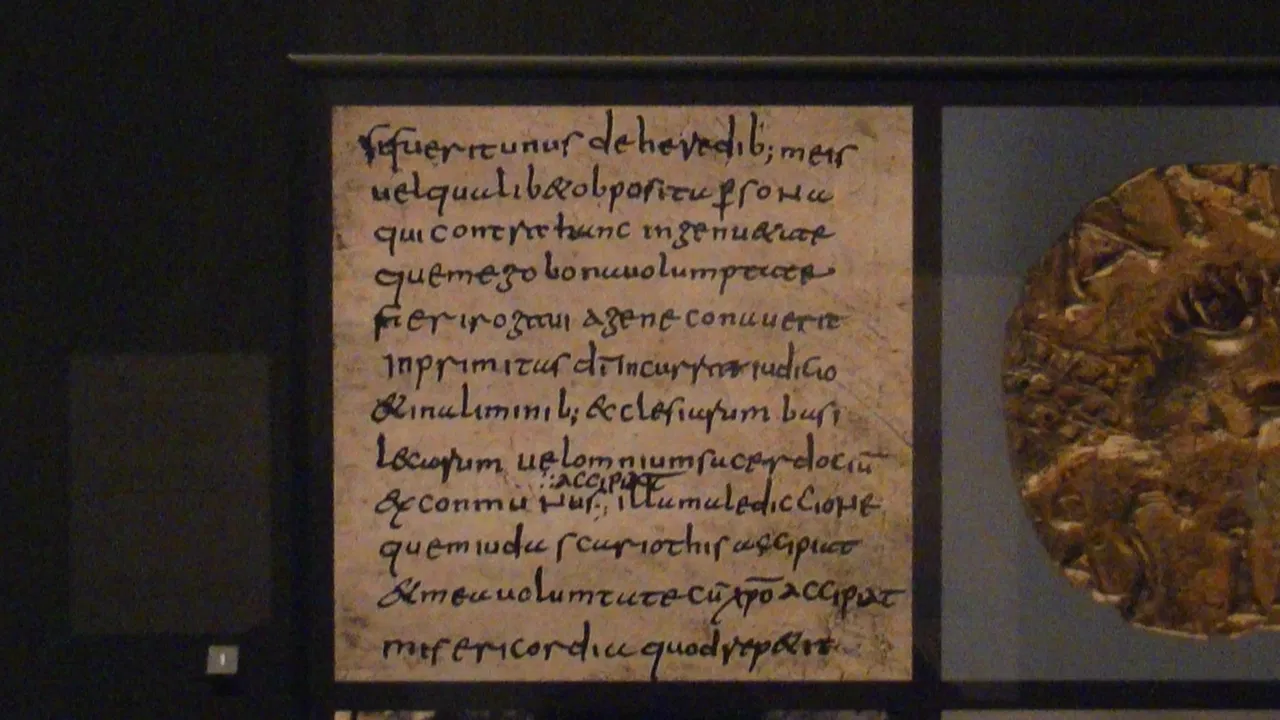 sifuerit unus de heredib; meis
uel qualib& obposita p̱sona
qui contra hanc ingenu&ate
quem ego bona uolumptate
fieri rogaui agere conuuerit
inprimitus dī incurrat iudicio
&in a liminib; &clesiarum basi
licarum uel omnium sacerdociū
accipiat
&xconmunus illa maladiccione
quem iuda scariothis accipiat
&mea uolumtate cū xp̄o accipiat
misericordia quod rep&it
1